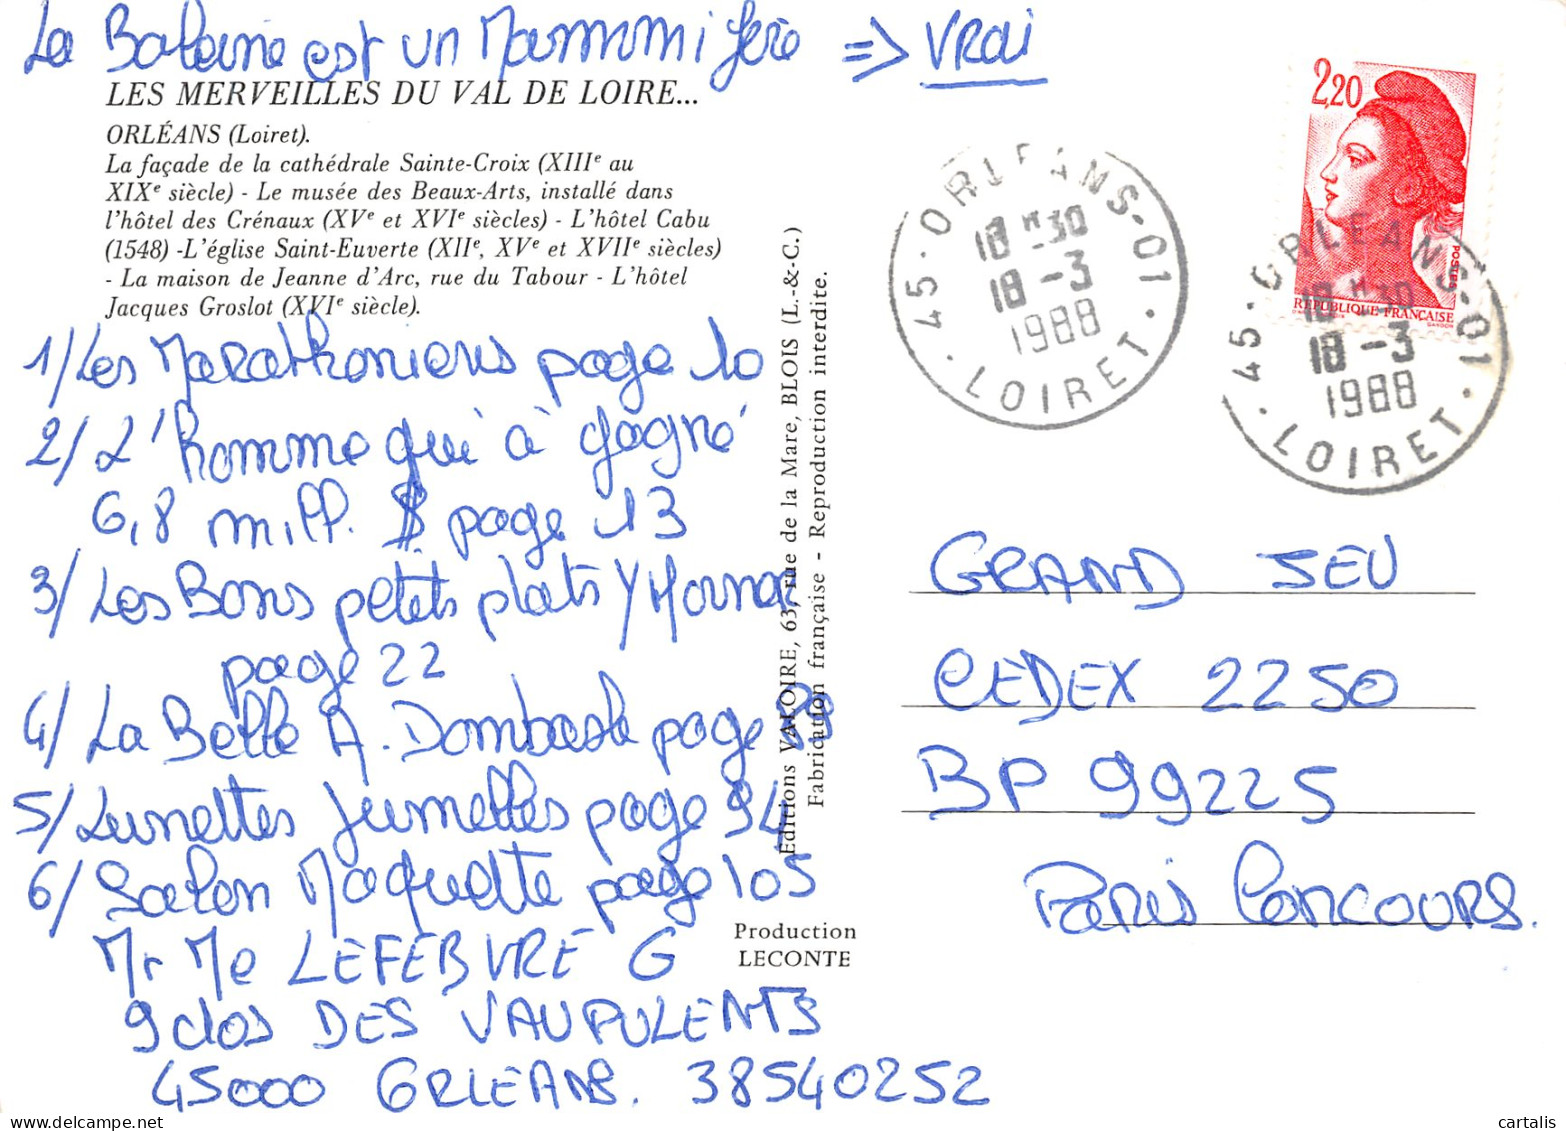 La Baleine est un Mammmifère => VRai
LES MERVEILLES DU VAL DE LOIRE...
ORLÉANS (Loiret).
La façade de la cathédrale Sainte-Croix (XIIIe au
XIXe siècle) - Le musée des Beaux-Arts, installé dans
l'hôtel des Crénaux (XVe et XVIe siècles) - L'hôtel Cabu
(1548) -L'église Saint-Euverte (XIIe, XVe et XVIIe siècles)
- La maison de Jeanne d'Arc, rue du Tabour - L'hôtel
Jacques Groslot (XVIe siècle).
1/ Les Marathoniens page 10
2/ L'homme qui à gagné
6,8 mill. $ page 13
3/ Les Bons petits plats Y Mournac
page 22
4/ La Belle A. Dombasle page 89
5/ Lunettes Jumelles page 94
6/ Salon Maquette page 105
Mr Me LEFEBVRE G
9 clos DES VAUPULENTS
45000 ORLEANS. 38540252
Editions VALOIRE, 63, rue de la Mare, BLOIS (L.-&-C.)
Fabrication française - Reproduction interdite.
Production
LECONTE
2,20
POSTES
REPUBLIQUE FRANÇAISE
GANDON
45 · ORLEANS-01 ·
18 H 30
18 -3
1988
· LOIRET ·
45 · ORLEANS-01 ·
18 H 30
18 -3
1988
· LOIRET ·
GRAND JEU
CEDEX 2250
BP 99225
PARIS CONCOURS.
cartalis